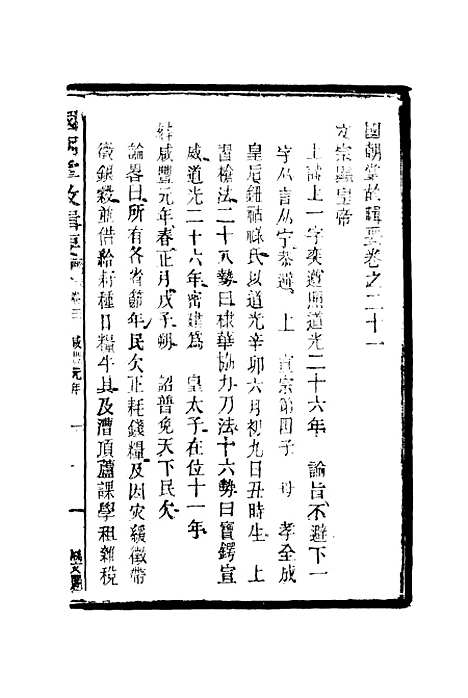 國朝掌故輯要卷之二十一
文宗顯皇帝
上諱上一字奕遵照道光二十六年　諭旨不避下一
字从言从宁恭避　上　宣宗第四子　母　孝全成
皇后鈕祜祿氏以道光辛卯六月初九日丑時生　上
習槍法二十八勢曰棣華協力刀法十六勢曰寶鍔宣
威道光二十六年密建為　皇太子在位十一年
咸豐元年春正月戊子朔　詔普免天下民欠
諭略曰所有各省節年民欠正耗錢糧及因灾緩徵帶
徵銀穀並借給籽種口糧牛具及漕項蘆課學租雜税
國朝掌故輯要　卷三　咸豐元年